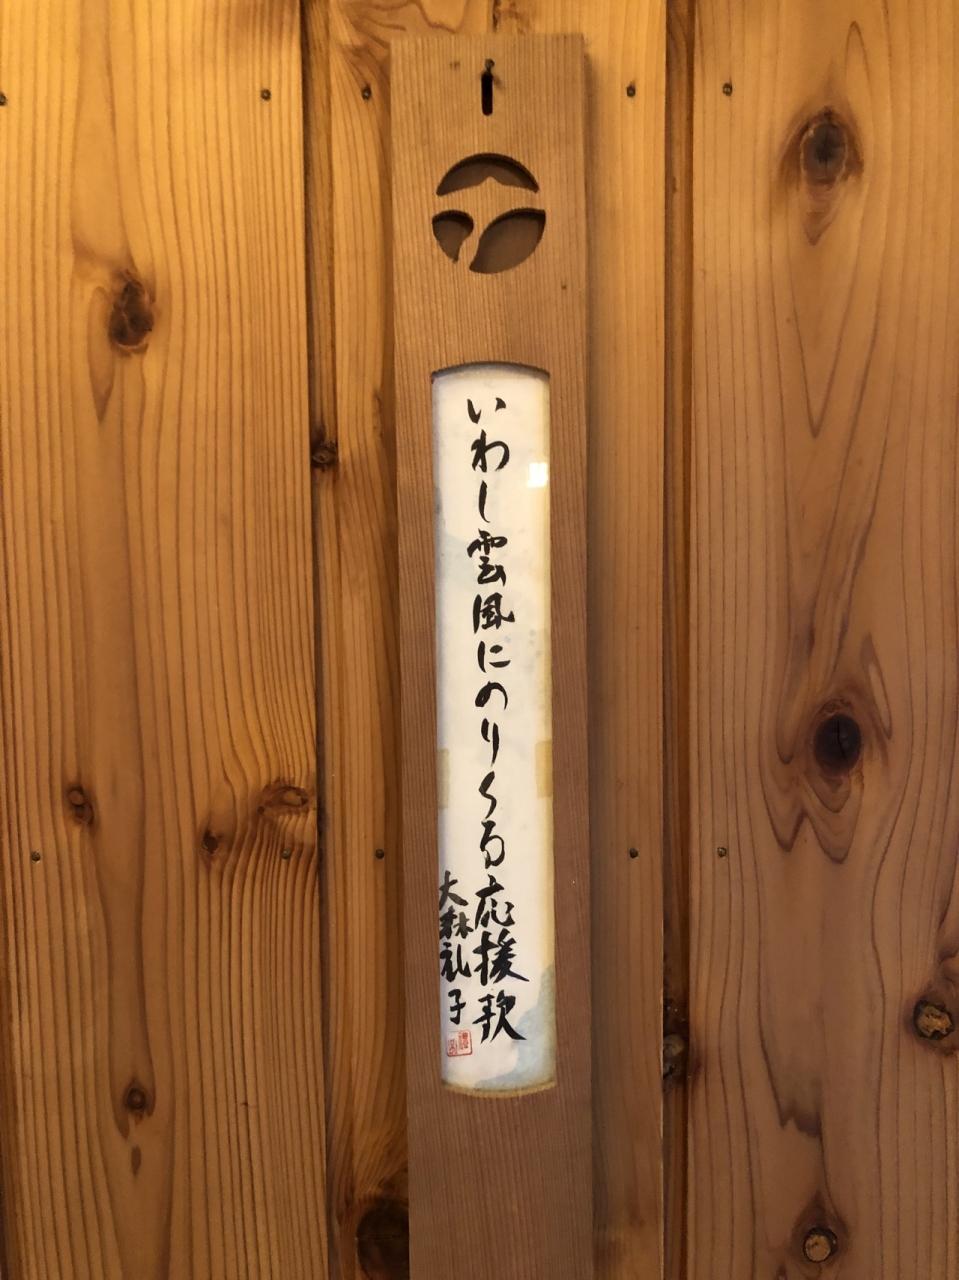 いわし雲風にのりくる応援歌
大森礼子